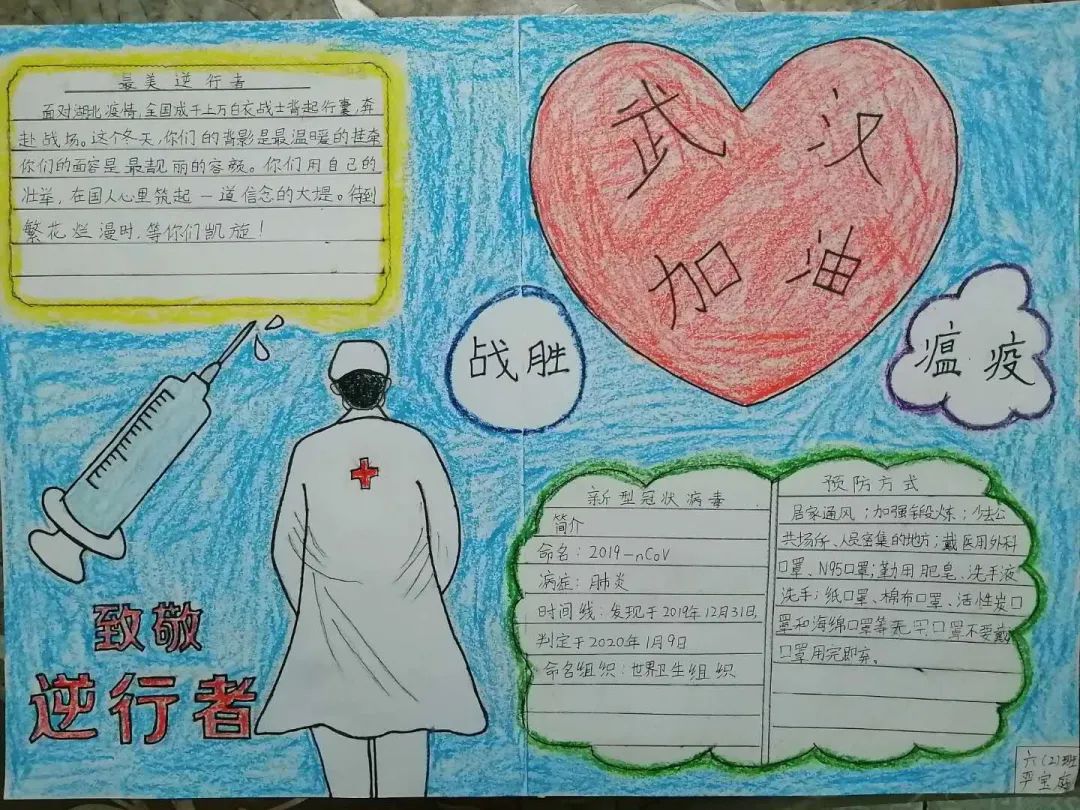 最美逆行者
面对湖北疫情,全国成千上万白衣战士背起行囊,奔
赴战场。这个冬天,你们的背影是最温暖的挂牵
你们的面容是最靓丽的容颜。你们用自己的
壮举,在国人心里筑起一道信念的大堤。待到
繁花烂漫时,等你们凯旋!
武汉
加油
战胜
瘟疫
新型冠状病毒
简介
命名:2019-nCoV
病症:肺炎
时间线:发现于2019年12月31日,
判定于2020年1月9日
命名组织:世界卫生组织
预防方式
居家通风;加强锻炼;少去公
共场所、人员密集的地方;戴医用外科
口罩、N95口罩;勤用肥皂、洗手液
洗手;纸口罩、棉布口罩、活性炭口
罩和海绵口罩等无口罩不要戴
口罩用完即弃。
致敬
逆行者
六(2)班
宝庭